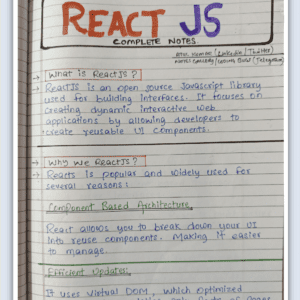 REACT JS
COMPLETE NOTES
(LinkedIn | Twitter)
(Telegram)
→ What is ReactJS ?
→ ReactJS is an open source Javascript library
used for building interfaces. It focuses on
creating dynamic interactive web
applications by allowing developers to
create reusable UI components.
→ Why we ReactJS ?
→ Reacts is popular and widely used for
several reasons :
Component Based Architecture,
React allows you to break down your UI
into reuse components. Making it easier
to manage.
Efficient Updates:
It uses Virtual DOM, which optimized